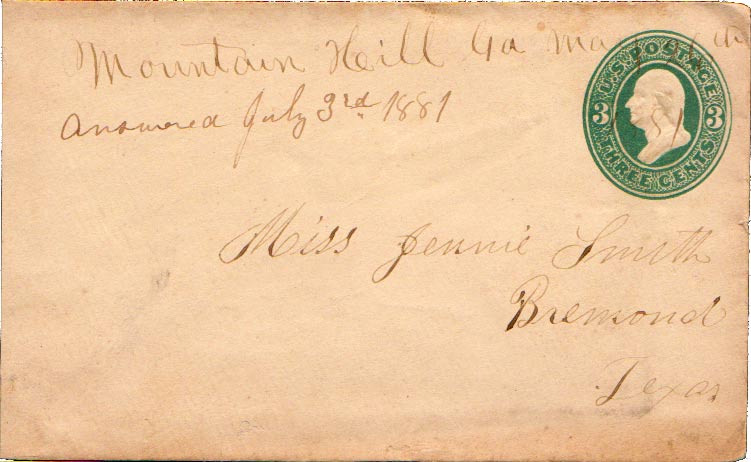 Mountain Hill Ga
answered July 3rd 1881
U.S. POSTAGE
3 3
THREE CENTS
Miss Jennie Smith
Bremond
Texas